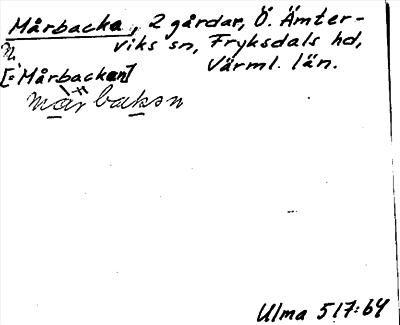 Mårbacka, 2 gårdar, Ö. Ämter-
viks sn, Fryksdals hd,
Värml. län.
[: Mårbackan]
Ulma 517:64